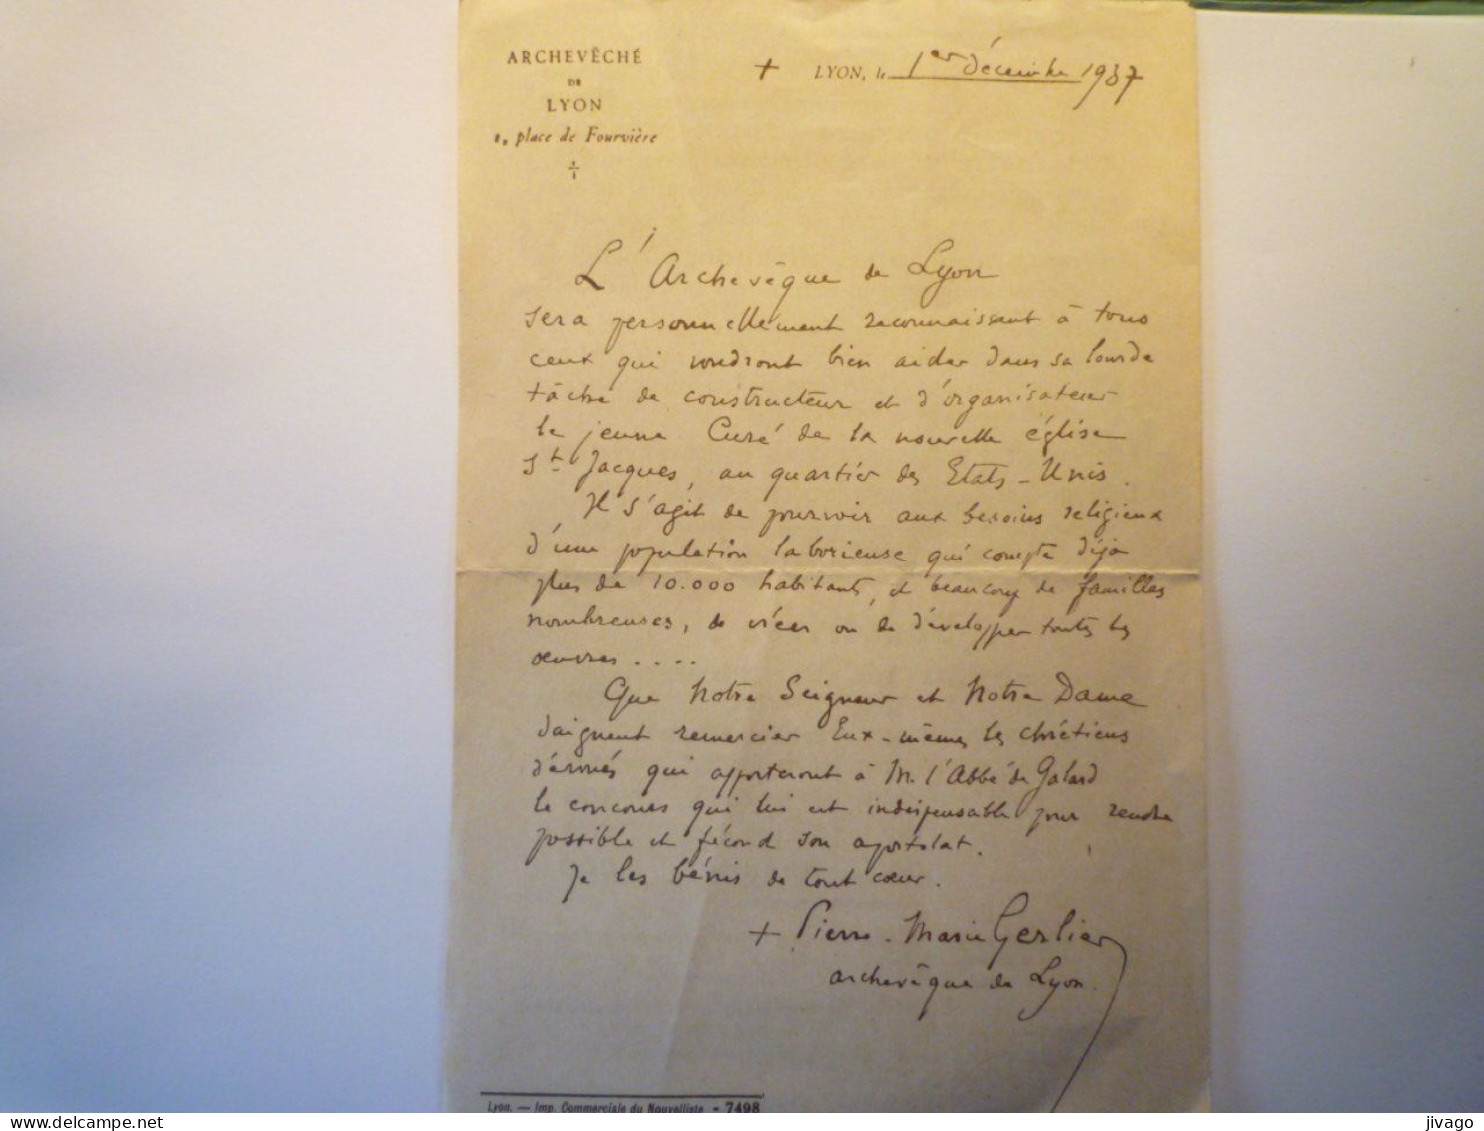 ARCHEVÊCHÉ
DE
LYON
8, place de Fourvière
+ LYON, le 1er décembre 1937
L'Archevêque de Lyon
sera personnellement reconnaissant à tous
ceux qui voudront bien aider dans sa lourde
tâche de constructeur et d'organisateur
le jeune Curé de la nouvelle église
St Jacques, au quartier des Etats-Unis.
Il s'agit de pourvoir aux besoins religieux
d'une population laborieuse qui compte déjà
plus de 10.000 habitants, et beaucoup de familles
nombreuses, de créer ou de développer toutes les
œuvres....
Que Notre Seigneur et Notre Dame
daignent remercier Eux-mêmes les chrétiens
dévoués qui apporteront à M. l'Abbé de Galard
le concours qui lui est indispensable pour rendre
possible et fécond son apostolat.
Je les bénis de tout cœur.
+ Pierre-Marie Gerlier
archevêque de Lyon.
Lyon. — Imp. Commerciale du Nouvelliste - 7498
delcampe.net
jivago